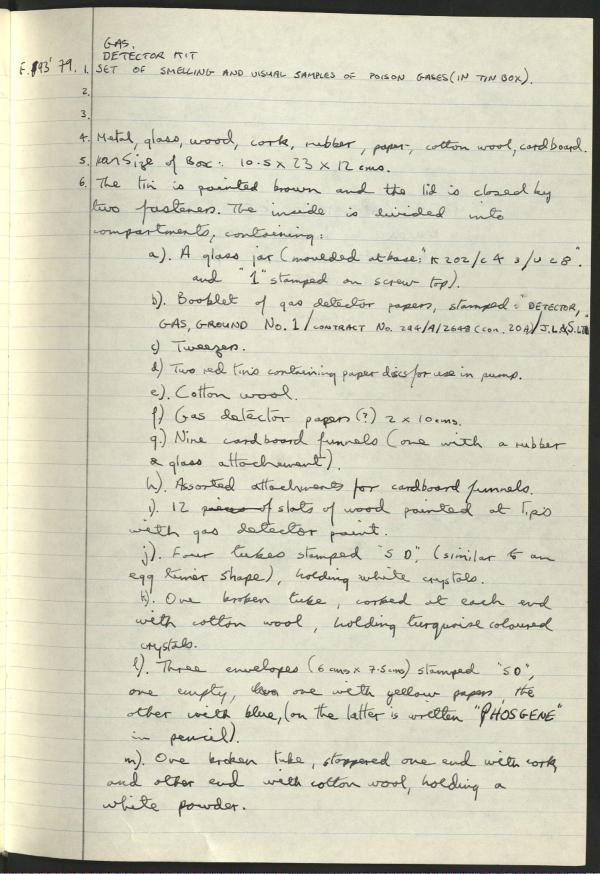 GAS.
DETECTOR KIT
F.93' 79. 1. SET OF SMELLING AND VISUAL SAMPLES OF POISON GASES (IN TIN BOX).
2.
3.
4. Metal, glass, wood, cork, rubber, paper, cotton wool, cardboard.
5. Size of Box: 10.5 x 23 x 12 cms.
6. The tin is painted brown and the lid is closed by
two fasteners. The inside is divided into
compartments, containing:
a). A glass jar (moulded at base: "K 202/C 4 3/U C8".
and "1" stamped on screw top).
b). Booklet of gas detector papers, stamped: "DETECTOR,
GAS, GROUND No. 1/CONTRACT No. 294/A/2648 (CON. 20A)/J.L&S.LTD
c) Tweezers.
d) Two red tins containing paper discs for use in pump.
e). Cotton wool.
f) Gas detector papers (?) 2 x 10cms.
g.) Nine cardboard funnels (one with a rubber
& glass attachment).
h). Assorted attachments for cardboard funnels.
i). 12 pieces of slats of wood painted at tips
with gas detector paint.
j). Four tubes stamped "S D", (similar to an
egg timer shape), holding white crystals.
k). One broken tube, corked at each end
with cotton wool, holding turquoise coloured
crystals.
l). Three envelopes (6 cms x 7.5 cms) stamped "SD",
one empty, one with yellow papers, the
other with blue, (on the latter is written "PHOSGENE"
in pencil).
m). One broken tube, stoppered one end with cork,
and other end with cotton wool, holding a
white powder.